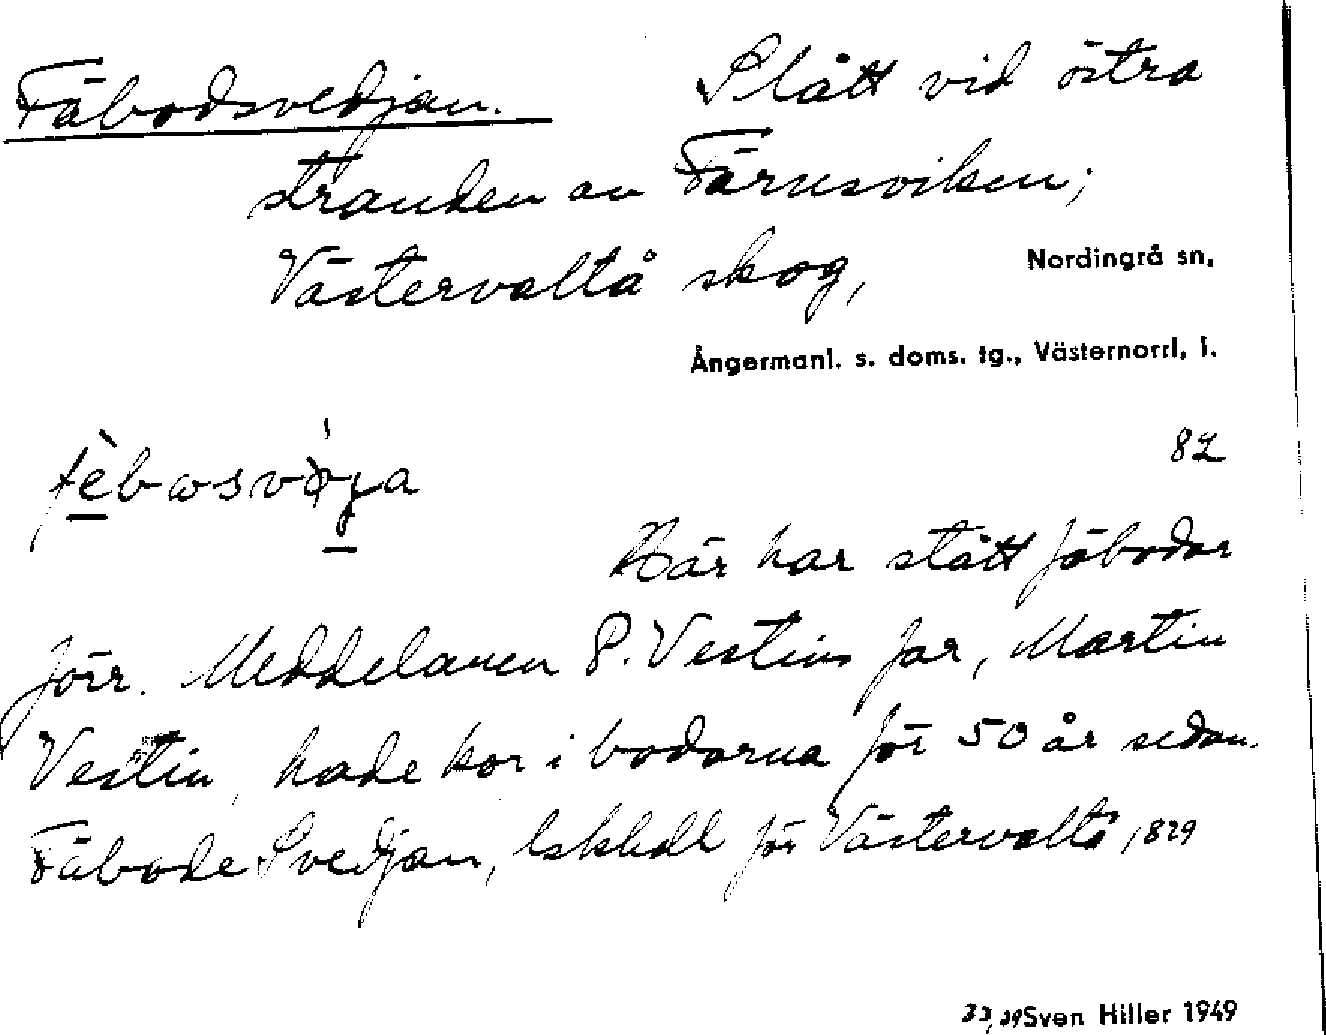 Fäbodsvedjan. Slått vid östra
stranden av Färusviken;
Västervaltå skog, Nordingrå sn,
Ångermanl. s. doms. tg., Västernorrl. l.
82
Här har stått fäbodar
förr. Meddelaren P. Vestins far, Martin
Vestin, hade kor i bodarna för 50 år sedan.
Fäbode Svedjan, lskhdl för Västervaltå, 1829
Sven Hiller 1949